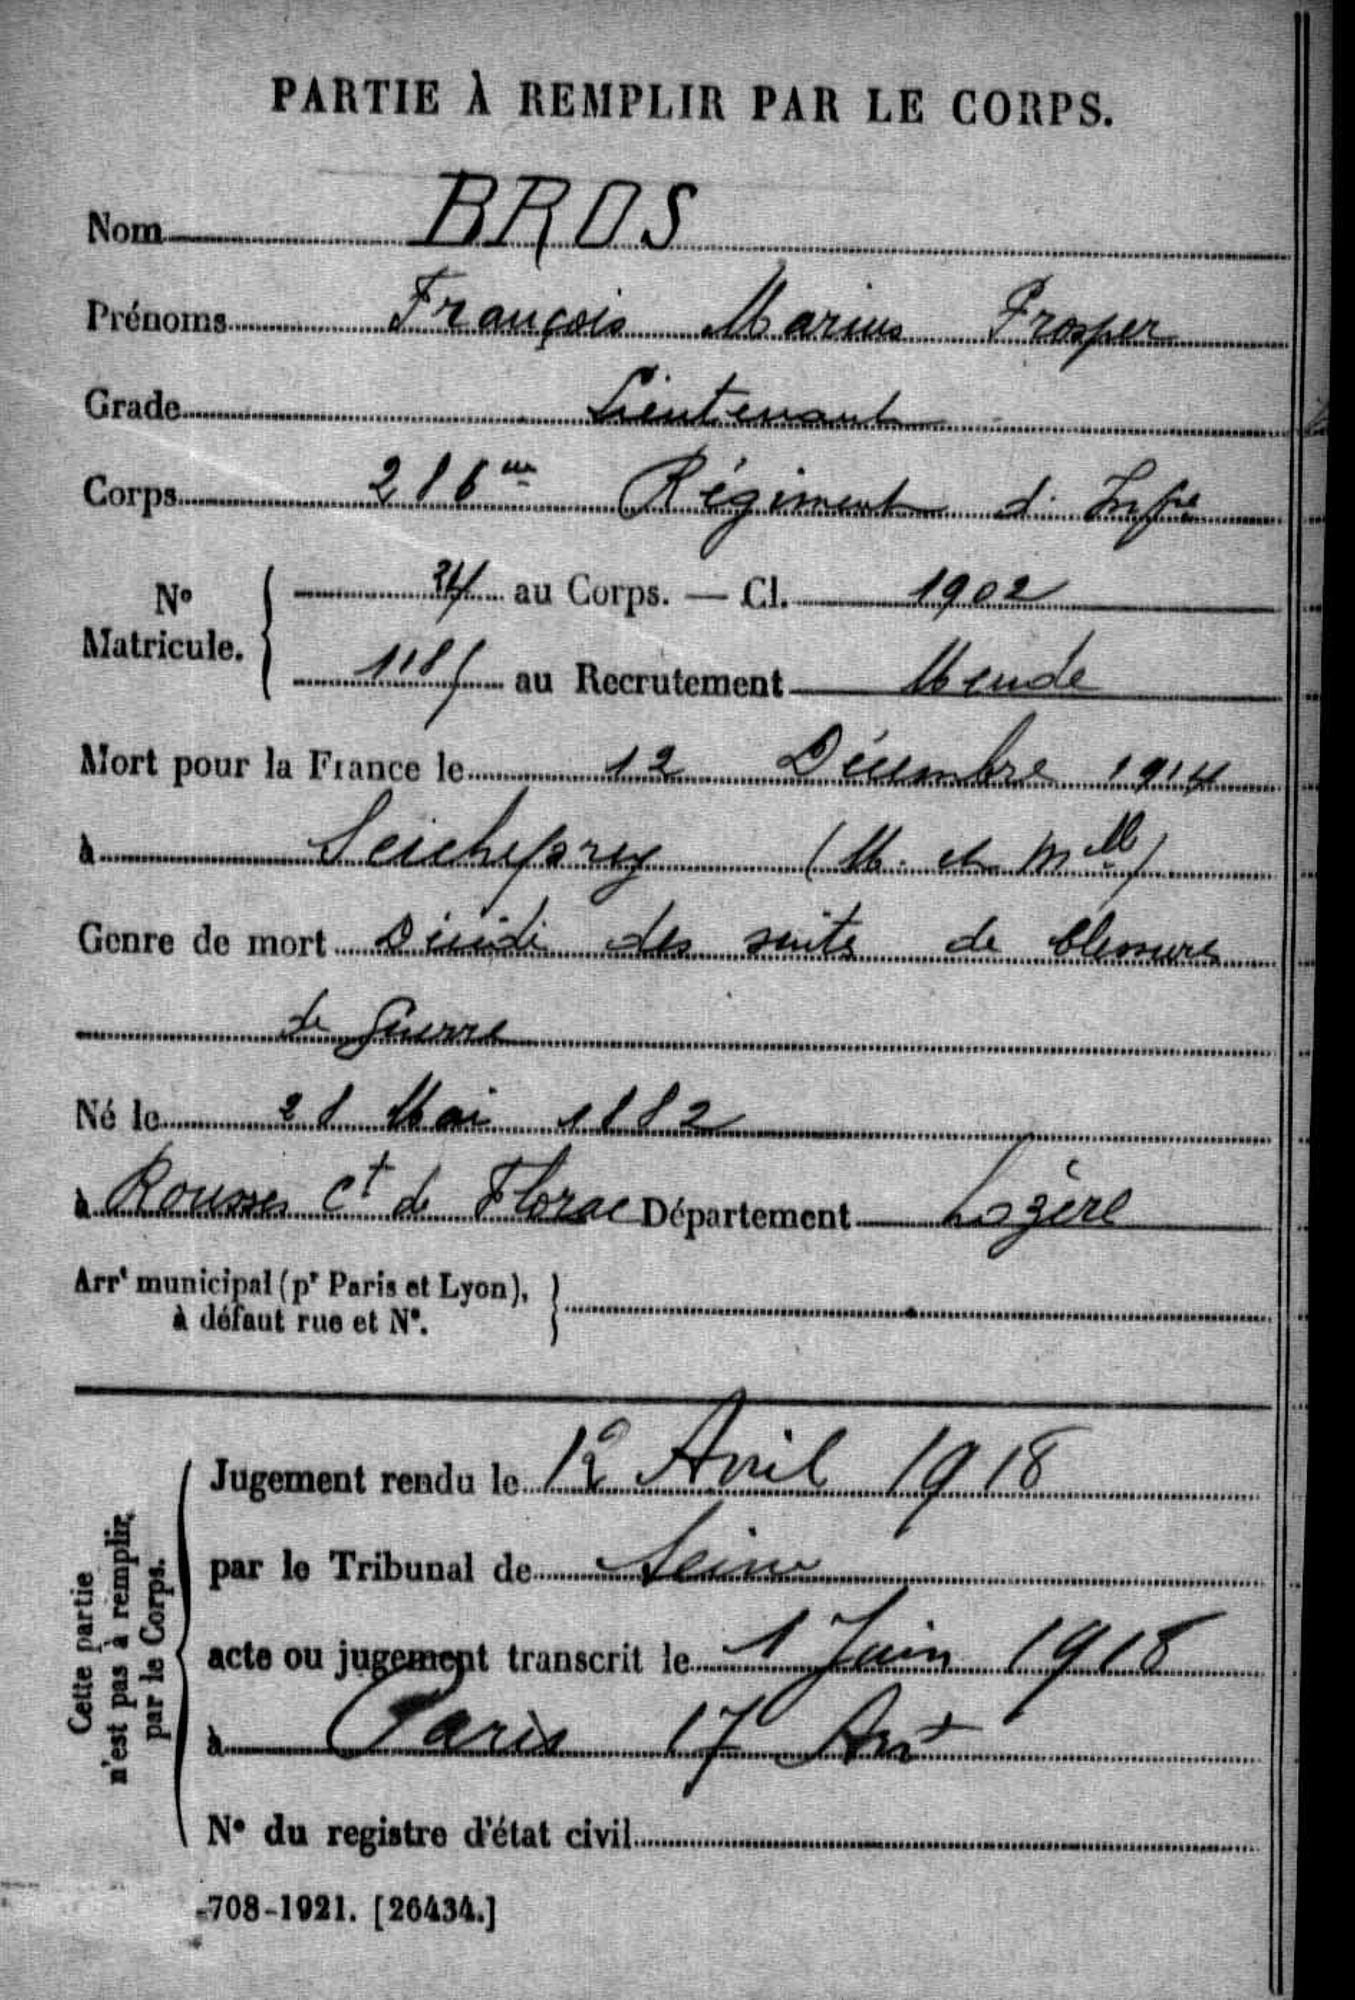 PARTIE À REMPLIR PAR LE CORPS.
Nom BROS
Prénoms François Marius Prosper
Grade Lieutenant
Corps 286me Régiment d'Infie
No Matricule. 24 au Corps. — Cl. 1902
au Recrutement Mende
Mort pour la France le 12 Décembre 1914
à Seicheprey (M. et Mlle)
Genre de mort Décédé des suites de blessures
de guerre
Né le 28 Mai 1882
à Rousses Ct de Florac Département Lozère
Arrt municipal (pr Paris et Lyon),
à défaut rue et No.
Cette partie
n'est pas à remplir
par le Corps.
Jugement rendu le 12 Avril 1918
par le Tribunal de Seine
acte ou jugement transcrit le 1 Juin 1918
à Paris 17 Art
No du registre d'état civil
-708-1921. [26434.]